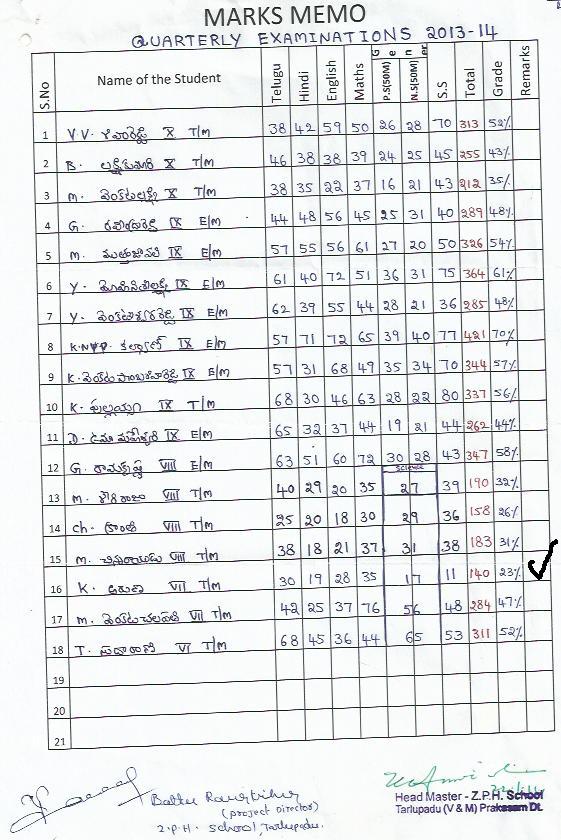 MARKS MEMO
QUARTERLY EXAMINATIONS 2013-14
S.No Name of the Student Telugu Hindi English Maths Gener P.S(50M) N.S(50M) S.S Total Grade Remarks
1 V.V. X T/M 38 42 59 50 26 28 70 313 52%
2 B. X T/M 46 38 38 39 24 25 45 255 43%
3 M. వెంకటలక్ష్మి X T/M 38 35 22 37 16 21 43 212 35%
4 G. IX E/M 44 48 56 45 25 31 40 289 48%
5 M. IX E/M 57 55 56 61 27 20 50 326 54%
6 Y. IX E/M 61 40 72 51 36 31 75 364 61%
7 Y. IX E/M 62 39 55 44 28 21 36 285 48%
8 కళ్యాణ్ IX E/M 57 71 72 65 39 40 77 421 70%
9 K. IX E/M 57 31 68 49 35 34 70 344 57%
10 K. పుల్లయ్య IX T/M 68 30 46 63 28 22 80 337 56%
11 D. ఉమామహేశ్వరి IX E/M 65 32 37 44 19 21 44 262 44%
12 G. రామకృష్ణ VIII E/M 63 51 60 72 30 28 43 347 58%
Science
13 M. శౌరిరాజు VIII T/M 40 29 20 35 27 39 190 32%
14 Ch. క్రాంతి VIII T/M 25 20 18 30 29 36 158 26%
15 M. చినరాయుడు VIII T/M 38 18 21 37 31 38 183 31%
16 K. అరుణ VII T/M 30 19 28 35 17 11 140 23%
17 M. వెంకటాచలపతి VII T/M 42 25 37 76 56 48 284 47%
18 T. సుధారాణి VI T/M 68 45 36 44 65 53 311 52%
19
20
21
(Project Director)
Z.P.H. School, Tarlupadu.
Head Master - Z.P.H. School
Tarlupadu (V & M) Prakasam Dt.